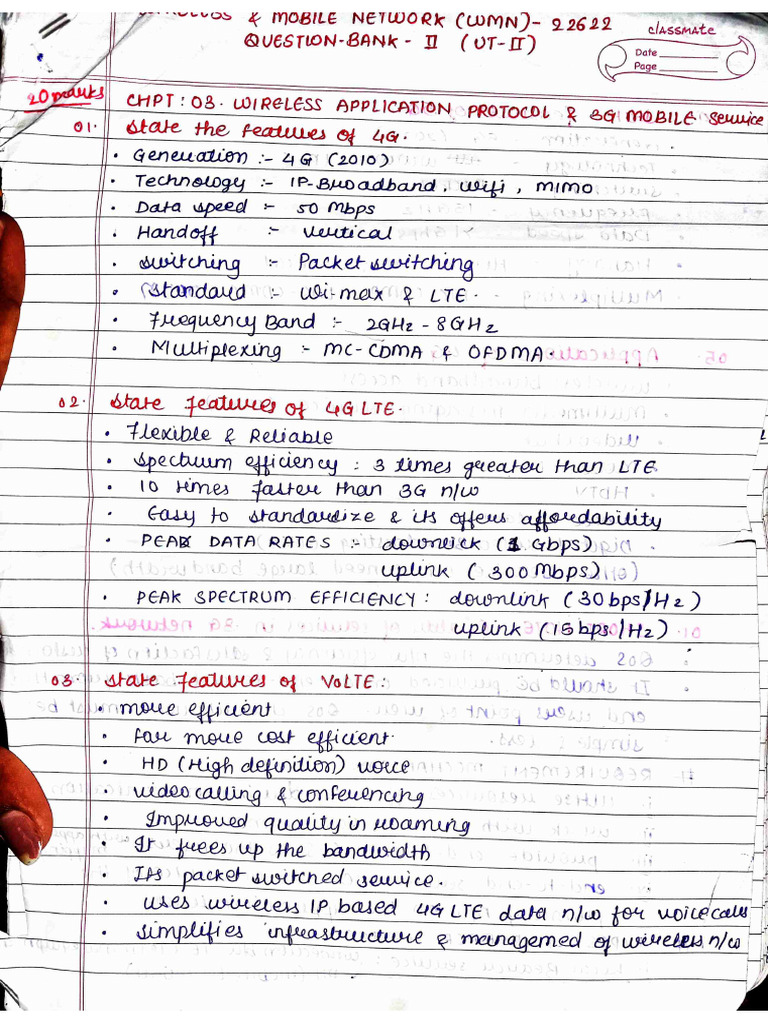 & MOBILE NETWORK (WMN)- 22622
QUESTION-BANK - II (UT-II)
classmate
Date
Page
20 marks
CHPT: 03. WIRELESS APPLICATION PROTOCOL & 3G MOBILE service
01. State the features of 4G.
• Generation :- 4G (2010)
• Technology :- IP-Broadband, wifi, MIMO
• Data speed :- 50 Mbps
• Handoff :- vertical
• switching :- Packet switching
• Standard :- Wi-max & LTE.
• Frequency Band :- 2GHz - 8GHz
• Multiplexing :- MC-CDMA & OFDMA.
02. State features of 4G LTE.
• Flexible & Reliable
• Spectrum efficiency : 3 times greater than LTE
• 10 times faster than 3G n/w
• Easy to standardize & its offers affordability
• PEAK DATA RATES :- downlick (1 Gbps)
uplink (300 Mbps)
• PEAK SPECTRUM EFFICIENCY : downlink (30 bps/Hz)
uplink (15 bps/Hz)
03. State features of VoLTE :
• more efficient
• far more cost efficient.
• HD (High definition) voice
• video calling & conferencing
• Improved quality in roaming
• It frees up the bandwidth
• Its packet switched service.
• uses wireless IP based 4G LTE data n/w for voice calls
• simplifies infrastructure & managemed of wireless n/w